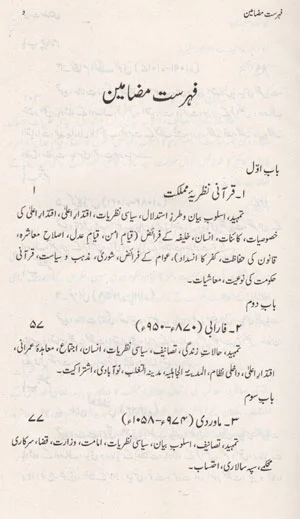 فہرست مضامین
فہرست مضامین
باب اوّل
۱۔ قرآنی نظریۂ مملکت ۱
تمہید، اسلوب بیان و طرزِ استدلال، سیاسی نظریات، اقتدارِ اعلیٰ، اقتدارِ اعلیٰ کی
خصوصیات، کائنات، انسان، خلیفہ کے فرائض (قیامِ امن، قیامِ عدل، اصلاحِ معاشرہ،
قانون کی حفاظت، کفر کا انسداد)، عوام کے فرائض، شوریٰ، مذہب و سیاست، قرآنی
حکومت کی نوعیت، معاشیات۔
باب دوم
۲۔ فارابی (۸۷۰ء۔۹۵۰ء) ۵۷
تمہید، حالاتِ زندگی، تصانیف، سیاسی نظریات، انسان، اجتماع، معاہدۂ عمرانی،
اقتدارِ اعلیٰ، داخلی نظام، المدینۃ الجاہلیہ، مدینۃ التغلب، نوآبادی، اشتراکیت۔
باب سوم
۳۔ ماوردی (۹۷۴ء۔۱۰۵۸ء) ۷۷
تمہید، تصانیف، اسلوب بیان، سیاسی نظریات، امامت، وزارت، قضاء، سرکاری
محکمے، سپہ سالاری، احتساب۔